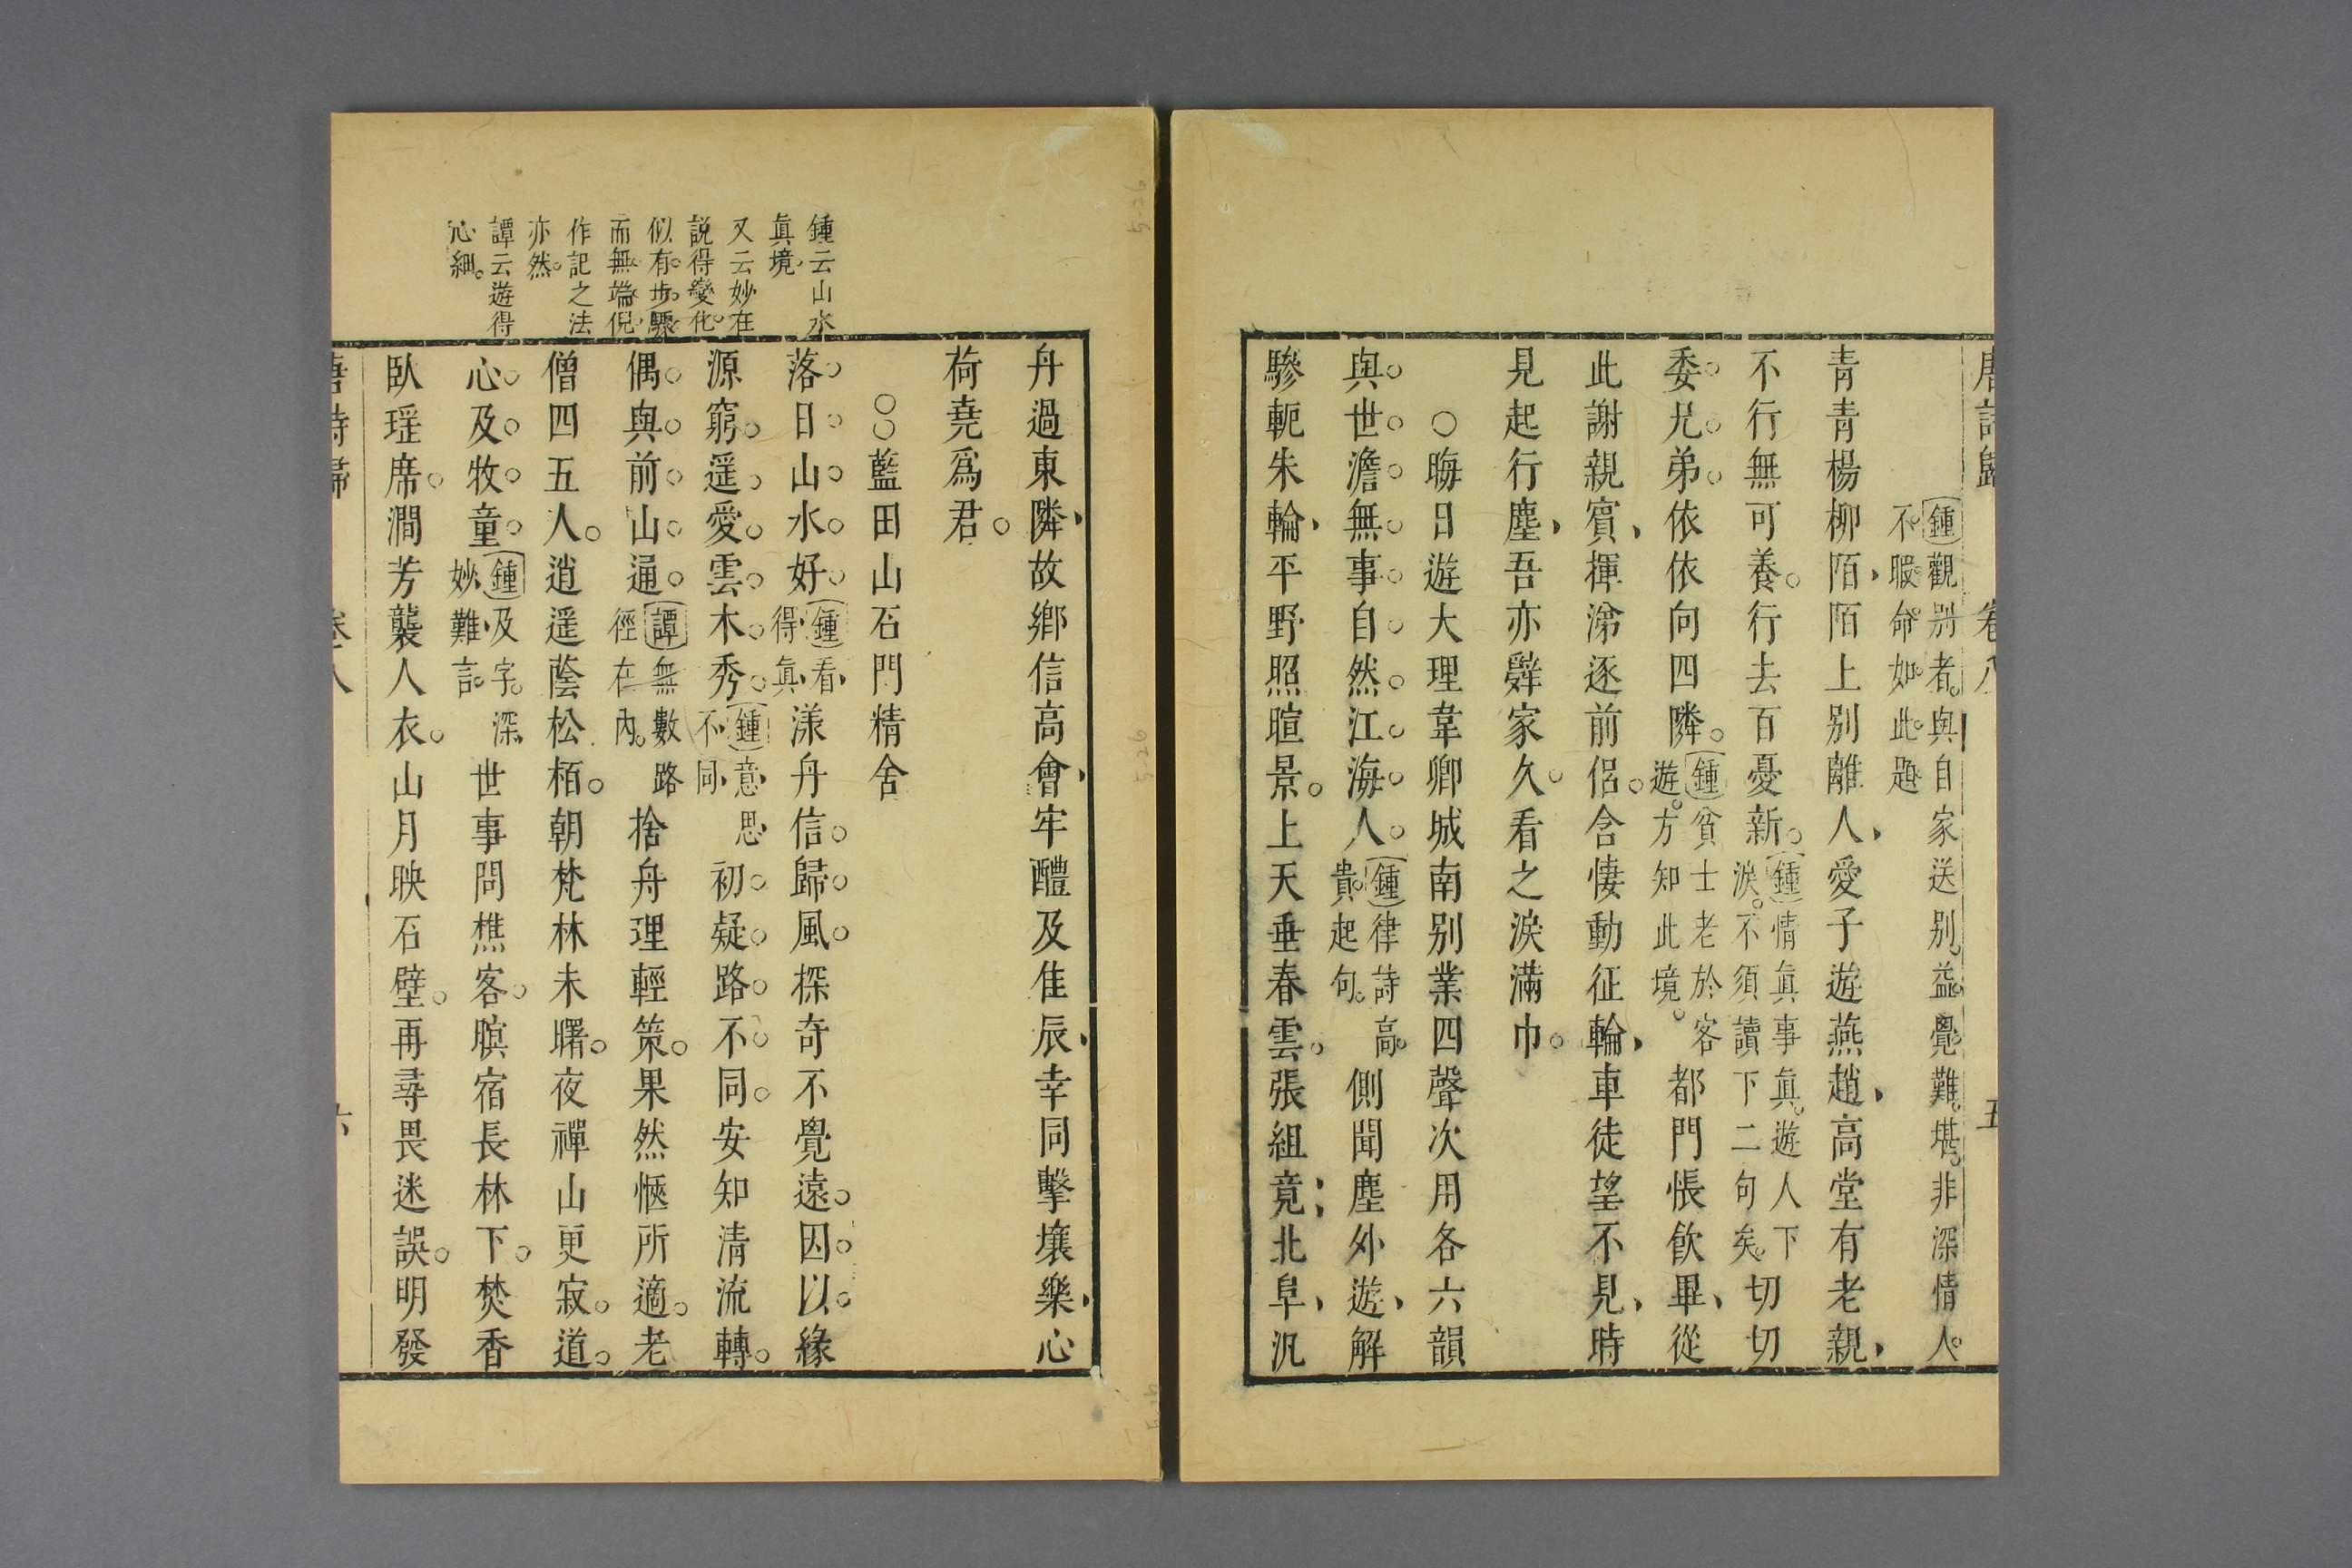 唐詩歸 卷八 五
鍾觀別者與自家送別益覺難堪非深情人
不暇命如此題
青青楊柳陌陌上別離人愛子遊燕趙高堂有老親
不行無可養行去百憂新鍾情真事真遊人下淚不須讀下二句矣切切
委兄弟依依向四隣鍾貧士老於客遊方知此境都門帳飲畢從
此謝親賓揮涕逐前侶含悽動征輪車徒望不見時
見起行塵吾亦辭家久看之淚滿巾
○晦日遊大理韋卿城南別業四聲次用各六韻
與世澹無事自然江海人鍾律詩高貴起句側聞塵外遊解
驂軛朱輪平野照暄景上天垂春雲張組竟北阜汎
舟過東隣故鄉信高會牢醴及佳辰幸同擊壤樂心
荷堯爲君
○○藍田山石門精舍
落日山水好鍾看得真漾舟信歸風探奇不覺遠因以緣
源窮遥愛雲木秀鍾意思不同初疑路不同安知清流轉
偶與前山通譚無數路徑在內捨舟理輕策果然愜所適老
僧四五人逍遥蔭松栢朝梵林未曙夜禪山更寂道
心及牧童鍾及字深妙難言世事問樵客暝宿長林下焚香
臥瑶席澗芳襲人衣山月映石壁再尋畏迷誤明發
鍾云山水
真境
又云妙在
説得變化
似有步驟
而無端倪
作記之法
亦然
譚云遊得
心細
唐詩歸 卷八 六